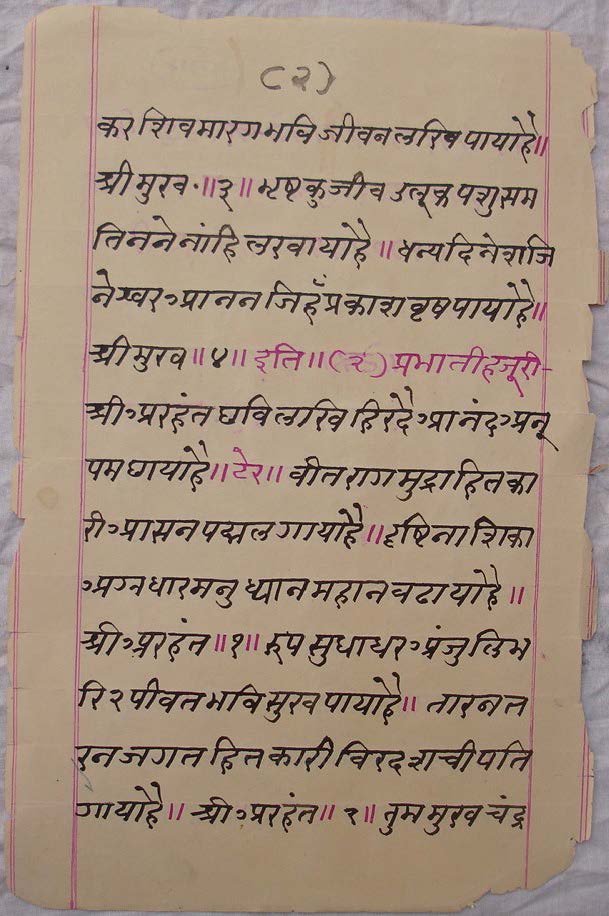 (२)
कर शिवमारगभविजीवनलखिपायोहै॥
श्रीमुख॰॥३॥ भृष्टकुजीवउलूकपशुसम
तिननेनांहिलखायोहै॥ धन्यदिनेशजि
नेश्वरआननजिहँप्रकाशवृषपायोहै॥
श्रीमुख॥४॥ इति॥(२) प्रभातीहजूरी-
श्रीअरहंतछविलखिहिरदैआनंदअनू
पमछायोहै॥टेर॥ वीतरागमुद्राहितका
रीआसनपद्मलगायोहै॥दृष्टिनाशिका
अग्रधारमनुध्यानमहानवढायोहै॥
श्रीअरहंत॥१॥ रूपसुधाधरअंजुलिभ
रि२पीवतभविसुखपायोहै॥ तारनत
रनजगतहितकारीविरदशचीपति
गायोहै॥ श्रीअरहंत॥२॥ तुममुखचंद्र